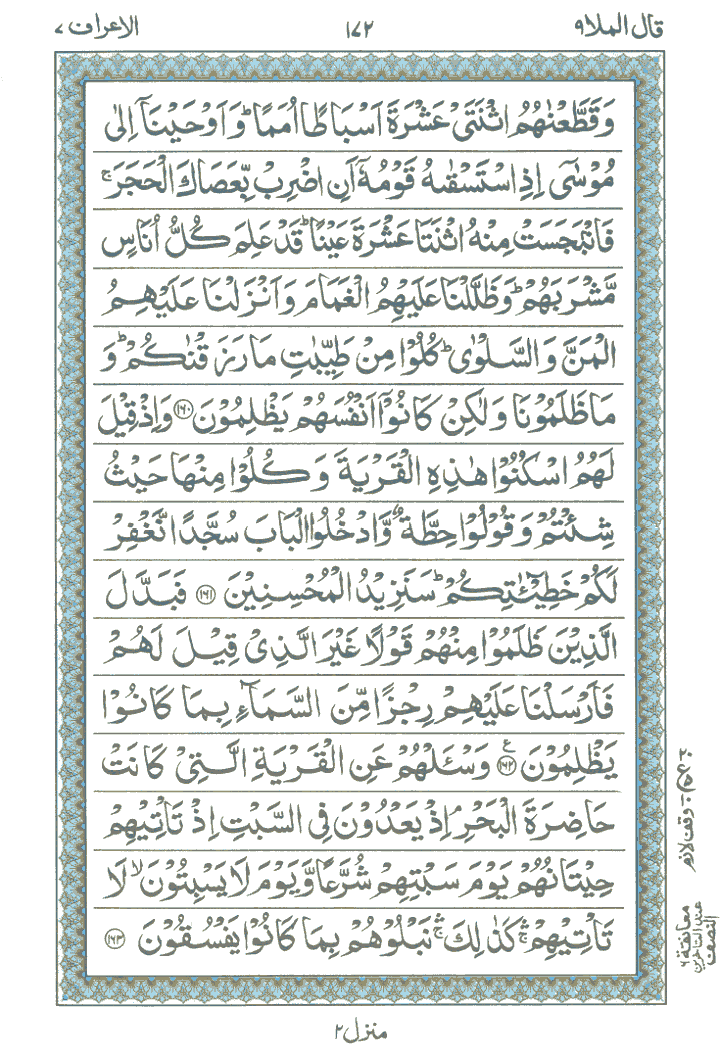 قال الملا٩
١٧٢
الاعراف ٧
وَقَطَّعْنٰهُمُ اثْنَتَیْ عَشْرَةَ اَسْبَاطًا اُمَمًا ؕ وَ اَوْحَیْنَاۤ اِلٰی
مُوْسٰۤی اِذِ اسْتَسْقٰىهُ قَوْمُهٗۤ اَنِ اضْرِبْ بِّعَصَاكَ الْحَجَرَ ۚ
فَانْۢبَجَسَتْ مِنْهُ اثْنَتَا عَشْرَةَ عَیْنًا ؕ قَدْ عَلِمَ كُلُّ اُنَاسٍ
مَّشْرَبَهُمْ ؕ وَ ظَلَّلْنَا عَلَیْهِمُ الْغَمَامَ وَ اَنْزَلْنَا عَلَیْهِمُ
الْمَنَّ وَ السَّلْوٰی ؕ كُلُوْا مِنْ طَیِّبٰتِ مَا رَزَقْنٰكُمْ ؕ وَ
مَا ظَلَمُوْنَا وَ لٰكِنْ كَانُوْۤا اَنْفُسَهُمْ یَظْلِمُوْنَ ﴿۱۶۰﴾ وَ اِذْ قِیْلَ
لَهُمُ اسْكُنُوْا هٰذِهِ الْقَرْیَةَ وَ كُلُوْا مِنْهَا حَیْثُ
شِئْتُمْ وَ قُوْلُوْا حِطَّةٌ وَّ ادْخُلُوا الْبَابَ سُجَّدًا نَّغْفِرْ
لَكُمْ خَطِیْٓـٰٔتِكُمْ ؕ سَنَزِیْدُ الْمُحْسِنِیْنَ ﴿۱۶۱﴾ فَبَدَّلَ
الَّذِیْنَ ظَلَمُوْا مِنْهُمْ قَوْلًا غَیْرَ الَّذِیْ قِیْلَ لَهُمْ
فَاَرْسَلْنَا عَلَیْهِمْ رِجْزًا مِّنَ السَّمَآءِ بِمَا كَانُوْا
یَظْلِمُوْنَ ﴿۱۶۲﴾ ع وَسْـَٔلْهُمْ عَنِ الْقَرْیَةِ الَّتِیْ كَانَتْ
حَاضِرَةَ الْبَحْرِ ۘ اِذْ یَعْدُوْنَ فِی السَّبْتِ اِذْ تَاْتِیْهِمْ
حِیْتَانُهُمْ یَوْمَ سَبْتِهِمْ شُرَّعًا وَّ یَوْمَ لَا یَسْبِتُوْنَ ۙ لَا
تَاْتِیْهِمْ ۛۚ كَذٰلِكَ ۛۚ نَبْلُوْهُمْ بِمَا كَانُوْا یَفْسُقُوْنَ ﴿۱۶۳﴾
وقف لازم
معانقة ٦
عند المتاخرین
النصف
منزل ٢